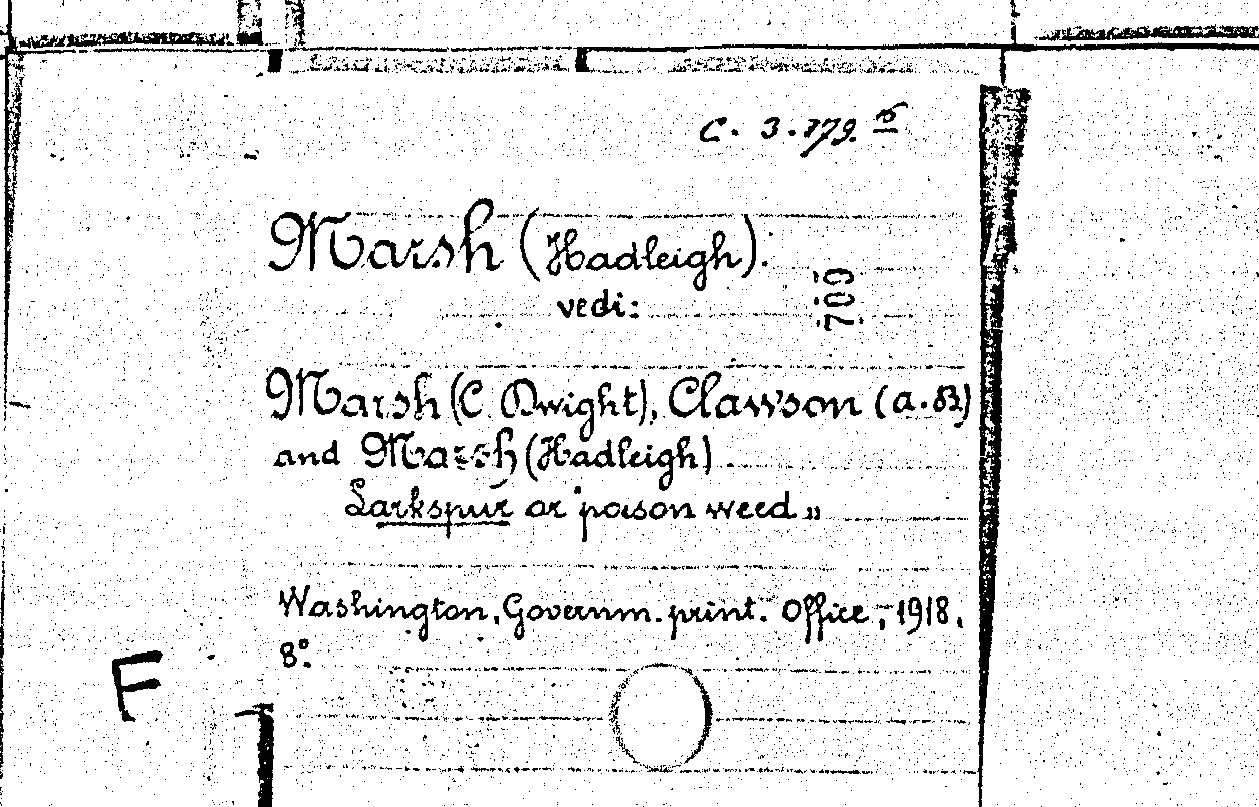 C. 3. 779. 15
Marsh (Hadleigh).
709
vedi:
Marsh (C Dwight), Clawson (A. B)
and Marsh (Hadleigh)
Larkspur or "poison weed„
Washington, Governm. print. Office, 1918.
8°.
F